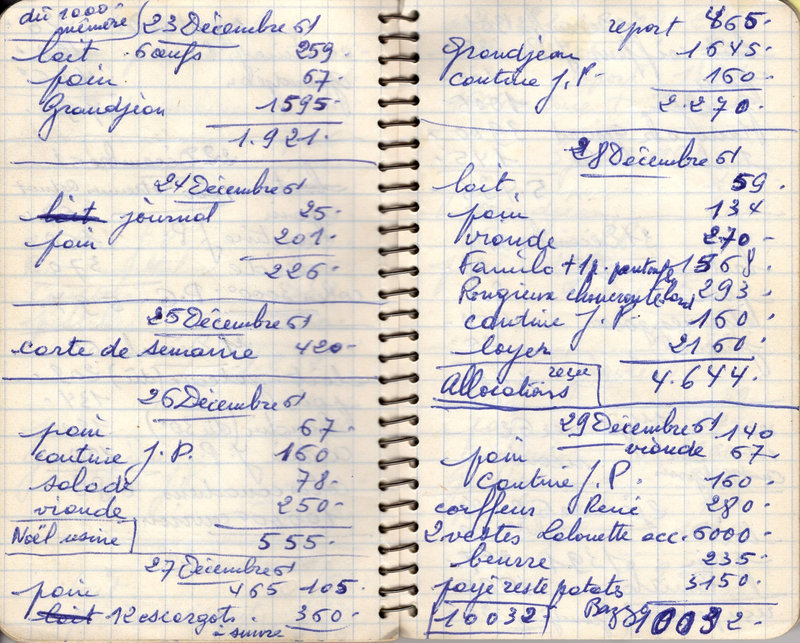 dû 1000
mémère
23 Décembre 61
lait 6 œufs 259
pain 67.
Grandjean 1595.
1.921.
24 Décembre 61
lait journal 25.
pain 201.
226.
25 Décembre 61
carte de semaine 420.
26 Décembre 61
pain 67.
cantine J.P. 160
salade 78.
viande 250.
Noël usine 555.
27 Décembre 61
pain 465 105.
lait 12 escargots. 360.
à suivre
report 465.
Grandjean 1645.
cantine J.P. 160.
2.270.
28 Décembre 61
lait 59.
pain 134
viande 270.
Familo + 1 p. 1568.
Rongieux choucroute lard 293.
cantine J.P. 160
loyer 2160.
Allocations reçue 4.644.
29 Décembre 61 140
pain viande 67.
Cantine J.P. 160.
coiffeur René 280
2 vestes Lalouette acc. 6000.
beurre 235.
payé reste patates 3150.
10032. 10032.